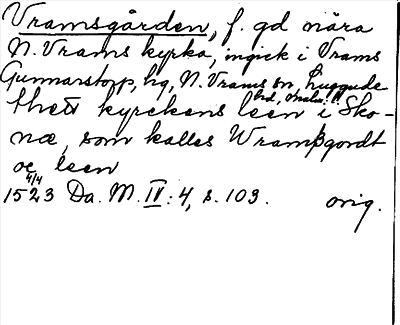 Vramsgården, f. gd nära
N. Vrams kyrka, ingick i Vrams
Gunnarstorp, hg, N. Vrams sn, Luggude
hd, Malm. l.
thett kyrckens leen i Sko-
næ, som kalles Wramßgordt
oc leen
4/4
1523 Da. M. IV: 4, s. 103. orig.